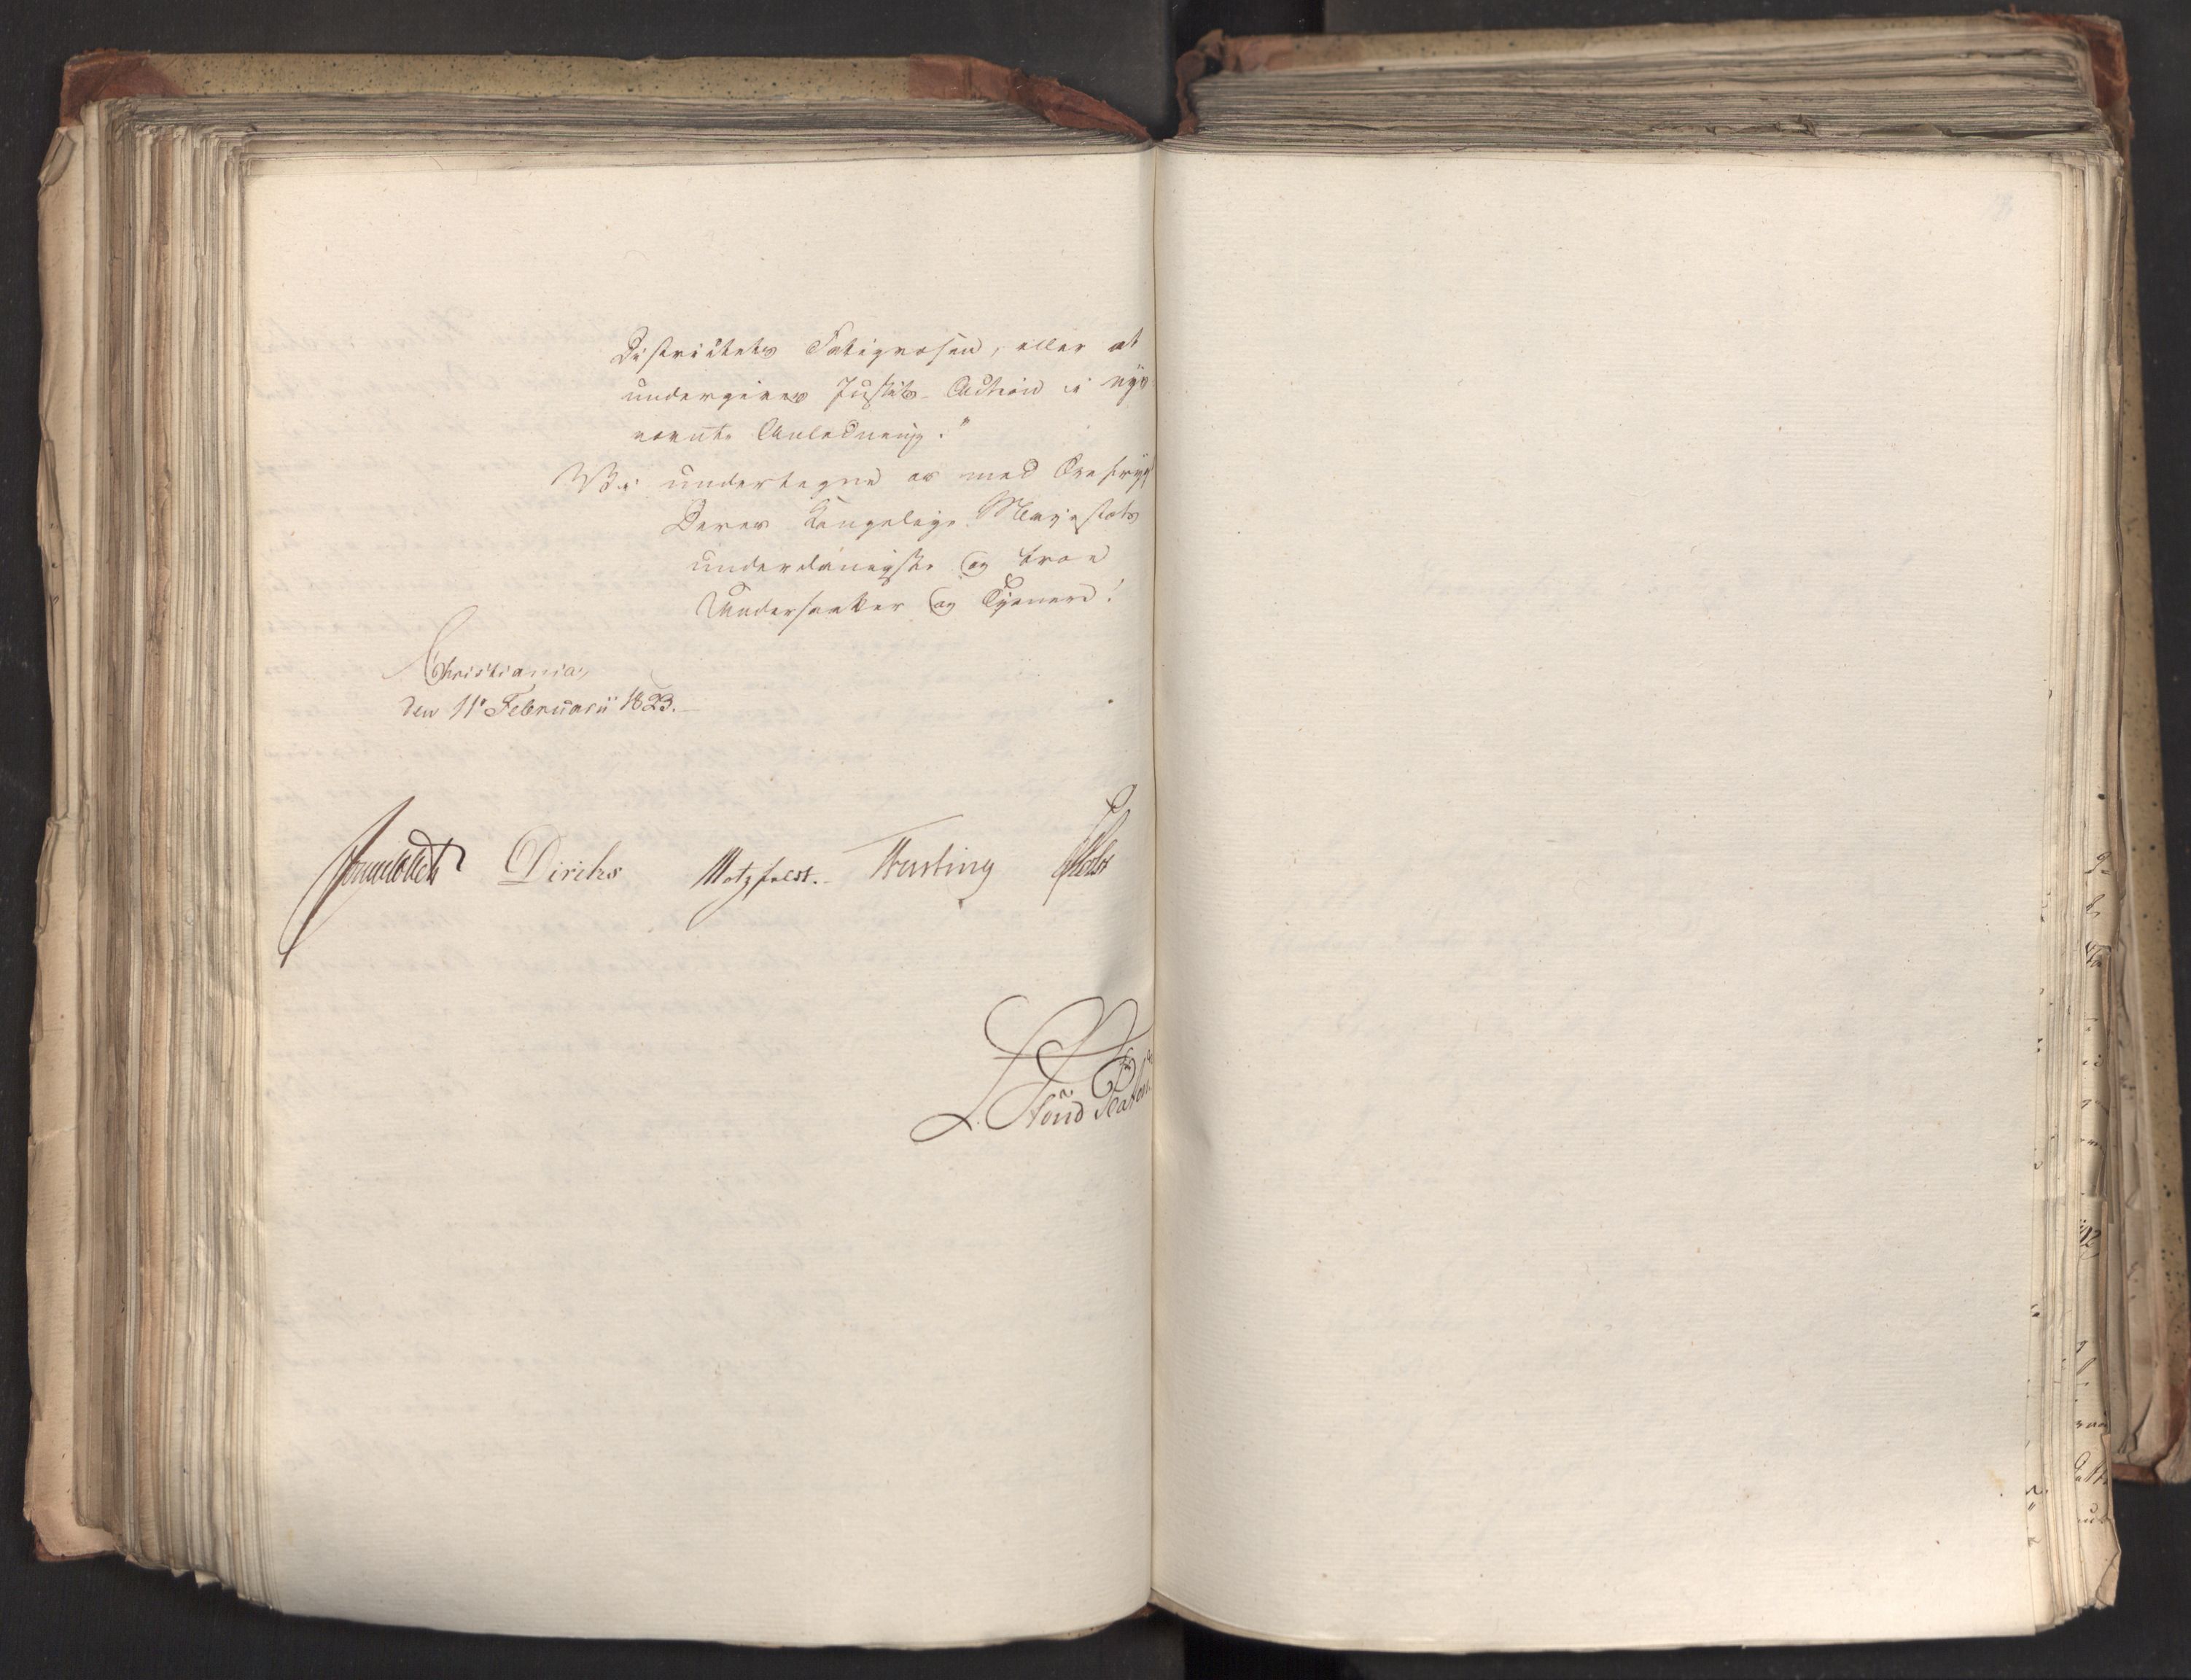 Districtets Fattigvæsen, eller at
undergives Justits-Action i nys
nævnte Anledning."
Vi undertegne os med Ærefrygt
Deres Kongelige Majestæts
underdanigste og troe
Undersaatter og Tjenere!
Christiania,
den 11te Februarii 1823.
Sommerhielm Diriks Motzfeldt. Krefting Holst
L. Stoud Platou